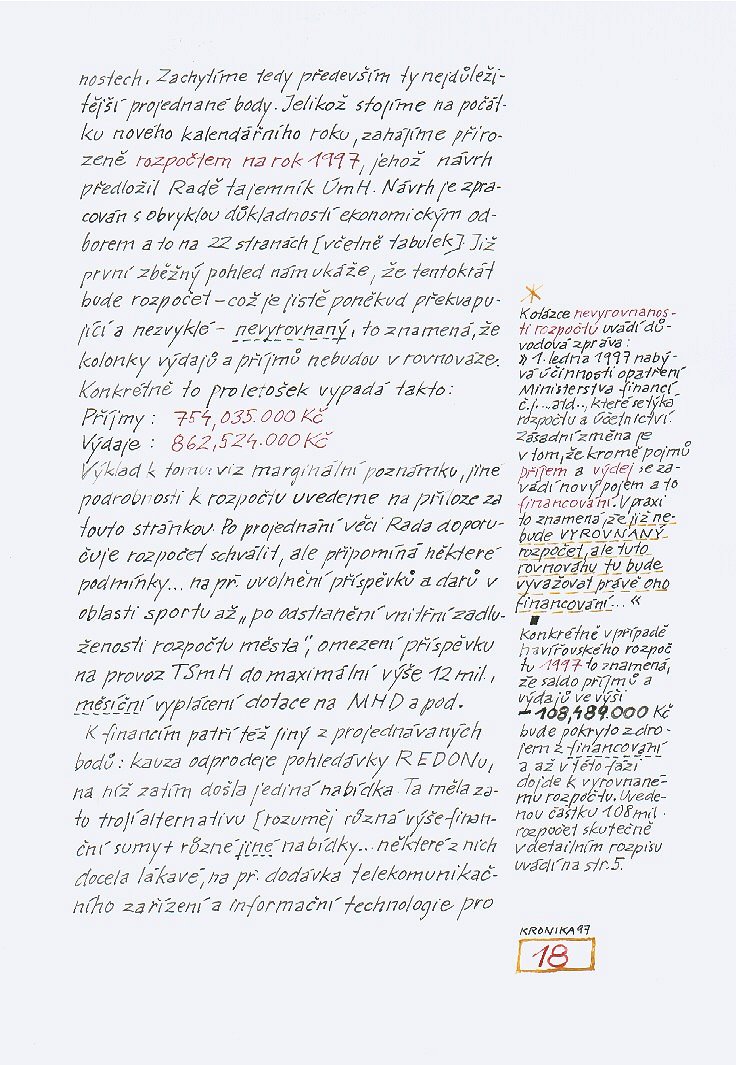 nostech. Zachytíme tedy především ty nejdůleži-
tější projednané body. Jelikož stojíme na počát-
ku nového kalendářního roku, zahájíme přiro-
zeně rozpočtem na rok 1997, jehož návrh
předložil Radě tajemník ÚmH. Návrh je zpra-
cován s obvyklou důkladností ekonomickým od-
borem a to na 22 stranách [včetně tabulek]. Již
první zběžný pohled nám ukáže, že tentokrát
bude rozpočet – což je jistě poněkud překvapu-
jící a nezvyklé – nevyrovnaný, to znamená, že
kolonky výdajů a příjmů nebudou v rovnováze.
Konkrétně to pro letošek vypadá takto:
Příjmy: 754,035.000 Kč
Výdaje: 862,524.000 Kč
Výklad k tomu: viz marginální poznámku, jiné
podrobnosti k rozpočtu uvedeme na příloze za
touto stránkou. Po projednání věci Rada doporu-
čuje rozpočet schválit, ale připomíná některé
podmínky... na př. uvolnění příspěvků a darů v
oblasti sportu až „po odstranění vnitřní zadlu-
ženosti rozpočtu města“, omezení příspěvku
na provoz TSmH do maximální výše 12 mil.,
měsíční vyplácení dotace na MHD a pod.
K financím patří též jiný z projednávaných
bodů: kauza odprodeje pohledávky REDONu,
na níž zatím došla jediná nabídka. Ta měla za-
to trojí alternativu [rozuměj různá výše finan-
ční sumy + různé jiné nabídky... některé z nich
docela lákavé, na př. dodávka telekomunikač-
ního zařízení a informační technologie pro
*
K otázce nevyrovnanos-
ti rozpočtu uvádí dů-
vodová zpráva:
» 1. ledna 1997 nabý-
vá účinnosti opatření
Ministerstva financí
č.j. ... atd.., které se týká
rozpočtu a účetnictví.
Zásadní změna je
v tom, že kromě pojmů
příjem a výdej se za-
vádí nový pojem a to
financování. V praxi
to znamená, že již ne-
bude VYROVNANÝ
rozpočet, ale tuto
rovnováhu tu bude
vyvažovat právě ono
financování... «
Konkrétně v případě
havířovského rozpoč
tu 1997 to znamená,
že saldo příjmů a
výdajů ve výši
– 108,489.000 Kč
bude pokryto zdro-
jem z financování
a až v této fázi
dojde k vyrovnané-
mu rozpočtu. Uvede-
nou částku 108 mil.
rozpočet skutečně
v detailním rozpisu
uvádí na str. 5.
KRONIKA 97
18